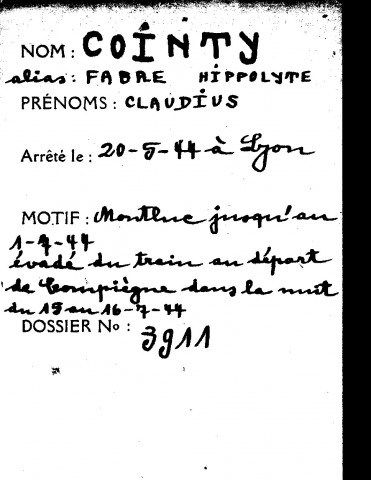 NOM : COINTY
alias : FABRE HIPPOLYTE
PRÉNOMS : CLAUDIUS
Arrêté le : 20-5-44 à Lyon
MOTIF : Montluc jusqu'au
1-7-44
évadé du train au départ
de Compiègne dans la nuit
du 15 au 16-7-44
DOSSIER No : 3911